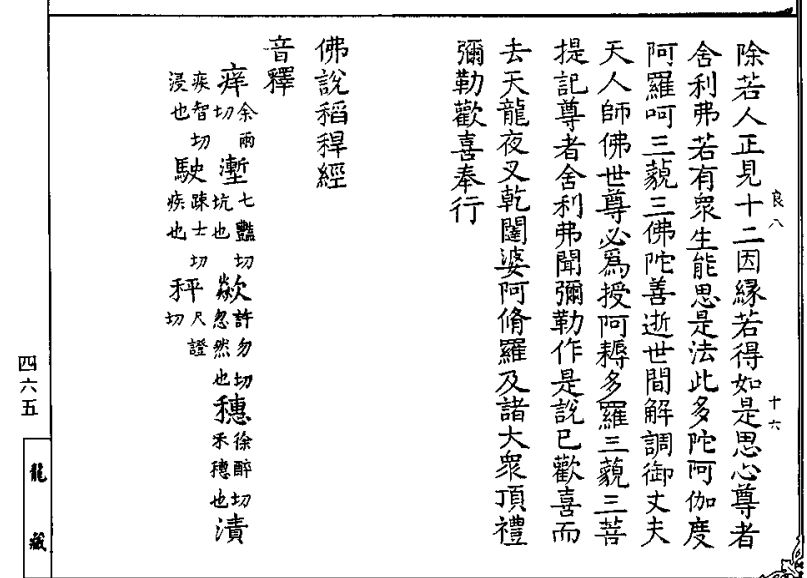 良八 十六
除若人正見十二因縁若得如是思心尊者
舍利弗若有衆生能思是法此多陀阿伽度
阿羅呵三藐三佛陀善逝世間解調御丈夫
天人師佛世尊必爲授阿耨多羅三藐三菩
提記尊者舍利弗聞彌勒作是說已歡喜而
去天龍夜叉乾闥婆阿脩羅及諸大衆頂禮
彌勒歡喜奉行
佛說稻稈經
音釋
痒余兩切塹七豔切坑也歘許勿切歘忽然也穗徐醉切禾穗也漬
疾智切浸也駛疎士切疾也秤尺證切
四六五
龍藏